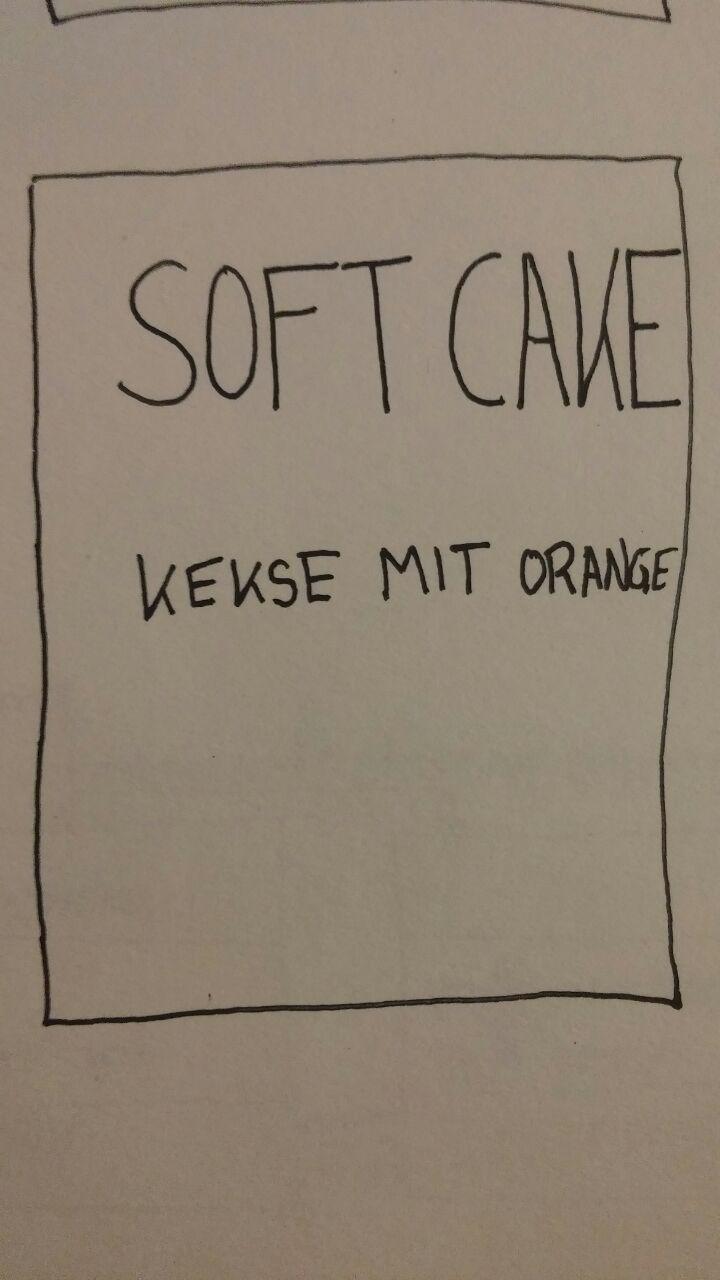 SOFT CAKE
KEKSE MIT ORANGE